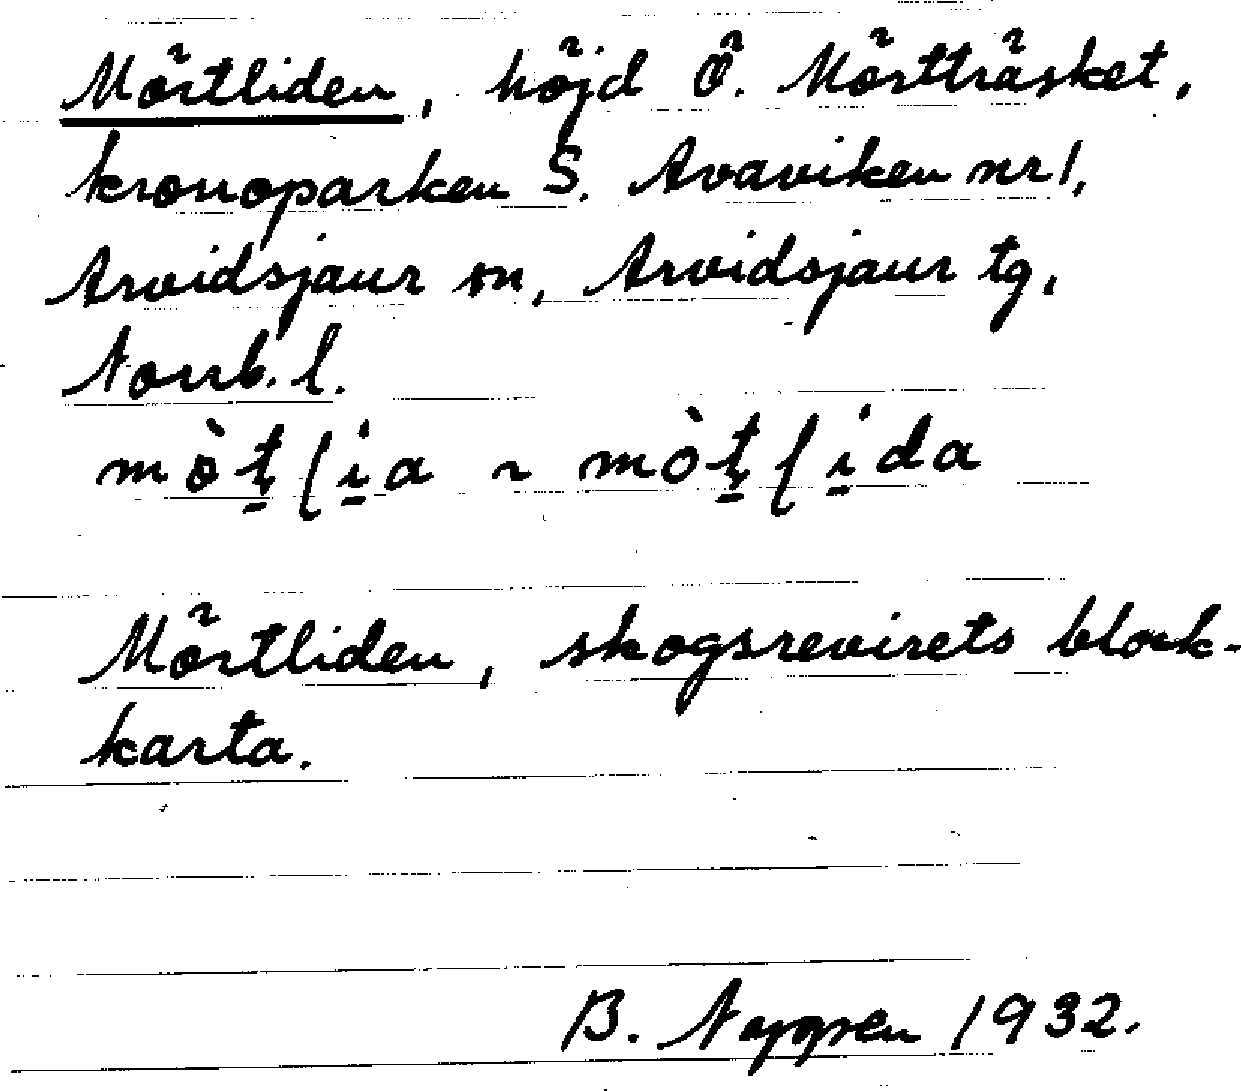 Mörtliden, höjd Ö. Mörtträsket,
kronoparken S. Avaviken nr 1,
Arvidsjaur sn, Arvidsjaur tg,
Norrb. l.
Mörtliden, skogsrevirets block-
karta.
B. 1932.